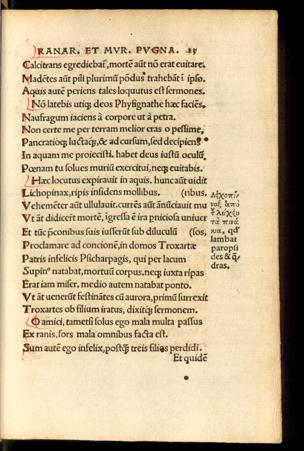 RANAR. ET MVR. PVGNA.
Calcitrans egrediebaf, mortē aūt nō erat euitare.
Madētes aūt pili plurimū põdus trahebāt ī ipso.
Aquis autē periens tales loquutus est sermones.
Nō latebis utiq; deos Physignathe hæc faciēs.
Naufragum iaciens à corpore ut à petra.
Non certe me per terram melior eras o pessime,
Pancratioq; luctaq;, & ad cursum, sed decipiens
In aquam me proiecisti. habet deus iustū oculū,
Pœnam tu solues muriū exercitui, neq; euitabis.
Hæc locutus expirauit in aquis. hunc aūt uidit
Lichopinax, ripis insidens mollibus. (ribus.
Vehemēter aūt ullulauit. currēs aūt ānūciauit mu
Vt āt didicerūt mortē, īgressa ē ira pniciosa uniuer
Et tūc pconibus suis iusserūt sub diluculū (sos,
Proclamare ad concionē, in domos Troxartæ
Patris infelicis Psicharpagis, qui per lacum
Supinꝰ natabat, mortuū corpus, neq; iuxta ripas
Erat iam miser. medio autem natabat ponto.
Vt āt uenerūt festinātes cū aurora, primū surrexit
Troxartes ob filium iratus, dixitq; sermonem.
O amici, tametsi solus ego mala multa passus
Ex ranis, sors mala omnibus facta est.
Sum autē ego infelix, postq̄ treis filios perdidi.
Et quidē
λειχοπί
ναξ ἀπὸ
τ λείχει
τὰ πινά
κια, qđ
lambat
paropsi
des & q̄
dras.